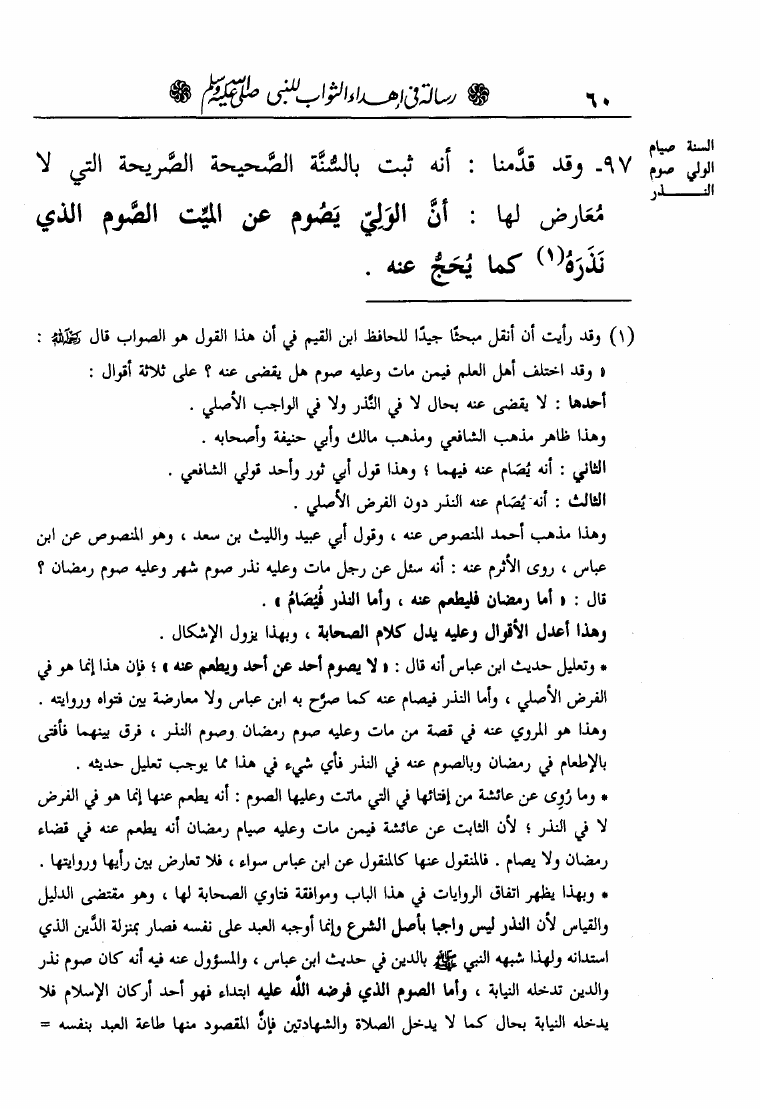 ٦٠ رسالة في إهداء الثواب للنبي صلى الله عليه وسلم
السنة صيام
الولي صوم
النـــــــذر
٩٧ـ وقد قدَّمنا : أنه ثبت بالسُّنَّة الصَّحيحة الصَّريحة التي لا
مُعَارض لها : أنَّ الوَلِيّ يَصُوم عن الميِّت الصَّوم الذي
نَذَرَهُ(١) كما يُحَجُّ عنه .
(١) وقد رأيت أن أنقل مبحثًا جيدًا للحافظ ابن القيم في أن هذا القول هو الصواب قال رحمه الله :
« وقد اختلف أهل العلم فيمن مات وعليه صوم هل يقضى عنه ؟ على ثلاثة أقوال :
أحدها : لا يقضى عنه بحال لا في النَّذر ولا في الواجب الأصلي .
وهذا ظاهر مذهب الشافعي ومذهب مالك وأبي حنيفة وأصحابه .
الثاني : أنه يُصَام عنه فيهما ؛ وهذا قول أبي ثور وأحد قولي الشافعي .
الثالث : أنه يُصَام عنه النذر دون الفرض الأصلي .
وهذا مذهب أحمد المنصوص عنه ، وقول أبي عبيد والليث بن سعد ، وهو المنصوص عن ابن
عباس ، روى الأثرم عنه : أنه سئل عن رجل مات وعليه نذر صوم شهر وعليه صوم رمضان ؟
قال : « أما رمضان فليطعم عنه ، وأما النذر فُيُصَامُ » .
وهذا أعدل الأقوال وعليه يدل كلام الصحابة ، وبهذا يزول الإشكال .
* وتعليل حديث ابن عباس أنه قال : « لا يصوم أحد عن أحد ويطعم عنه » ؛ فإن هذا إنما هو في
الفرض الأصلي ، وأما النذر فيصام عنه كما صرَّح به ابن عباس ولا معارضة بين فتواه وروايته .
وهذا هو المروي عنه في قصة من مات وعليه صوم رمضان وصوم النذر ، فرق بينهما فأفتى
بالإطعام في رمضان وبالصوم عنه في النذر فأي شيء في هذا مما يوجب تعليل حديثه .
* وما رُوِى عن عائشة من إفتائها في التي ماتت وعليها الصوم : أنه يطعم عنها إنما هو في الفرض
لا في النذر ؛ لأن الثابت عن عائشة فيمن مات وعليه صيام رمضان أنه يطعم عنه في قضاء
رمضان ولا يصام . فالمنقول عنها كالمنقول عن ابن عباس سواء ، فلا تعارض بين رأيها وروايتها .
* وبهذا يظهر اتفاق الروايات في هذا الباب وموافقة فتاوي الصحابة لها ، وهو مقتضى الدليل
والقياس لأن النذر ليس واجبا بأصل الشرع وإنما أوجبه العبد على نفسه فصار بمنزلة الدَّين الذي
استدانه ولهذا شبهه النبي ﷺ بالدين في حديث ابن عباس ، والمسؤول عنه فيه أنه كان صوم نذر
والدين تدخله النيابة ، وأما الصوم الذي فرضه اللَّه عليه ابتداء فهو أحد أركان الإسلام فلا
يدخله النيابة بحال كما لا يدخل الصلاة والشهادتين فإنَّ المقصود منها طاعة العبد بنفسه =